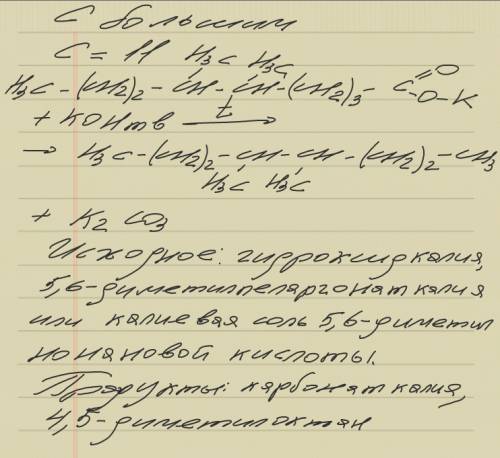 С большим
C = 11 H₃C H₃C
H₃C - (CH₂)₂ - CH - CH - (CH₂)₃ - C =O -O-K
+ KOHтв t →
→ H₃C-(CH₂)₂-CH-CH-(CH₂)₂-CH₃
H₃C H₃C
+ K₂CO₃
Исходное: гидроксид калия,
5,6-диметилпеларгонат калия
или калиевая соль 5,6-диметил
нонановой кислоты.
Продукты: карбонат калия,
4,5-диметилоктан